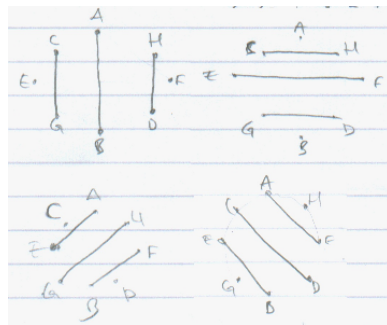 A
C H
E F
G D
B
A
C H
E F
G D
B
A
C H
E F
G D
B
A
C H
E F
G D
B